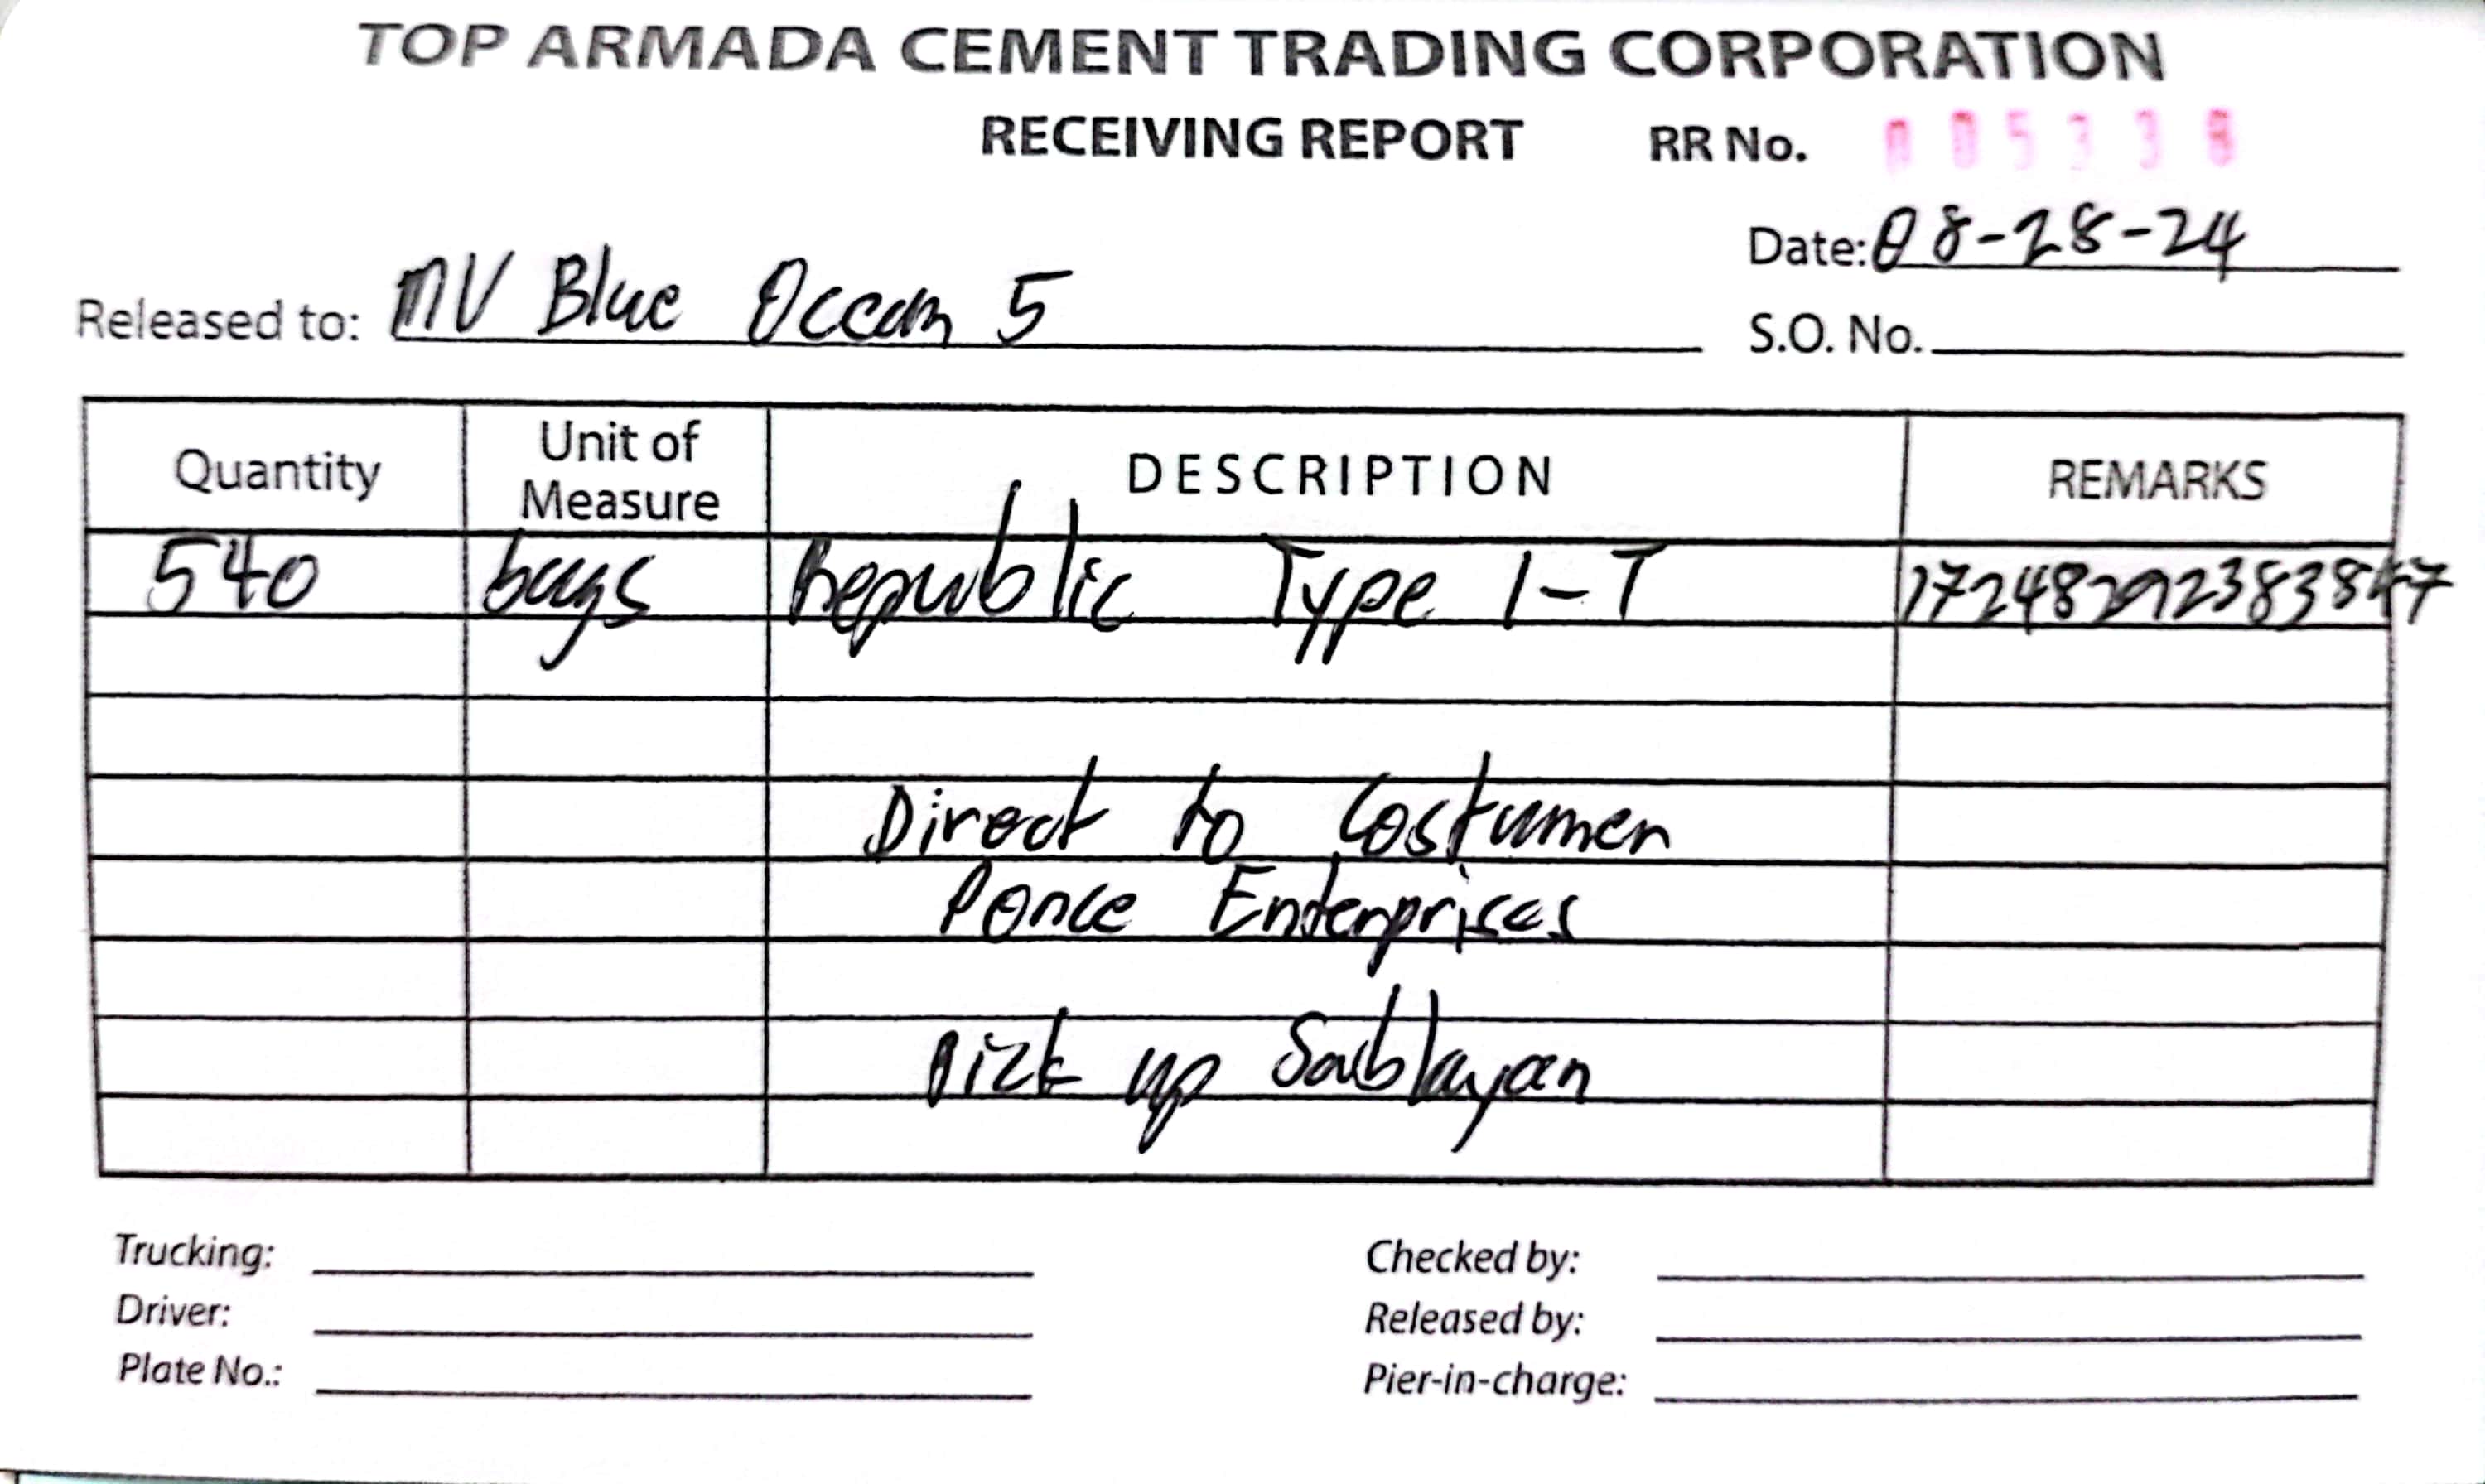 TOP ARMADA CEMENT TRADING CORPORATION
RECEIVING REPORT RR No. 005338
Date: 08-28-24
Released to: MV Blue Ocean 5
S.O. No.
Quantity Unit of Measure DESCRIPTION REMARKS
540 bags Republic Type 1-T
Direct to Costumer
Ponce Enterprises
Pick up Sablayan
Trucking: Checked by:
Driver: Released by:
Plate No.: Pier-in-charge: